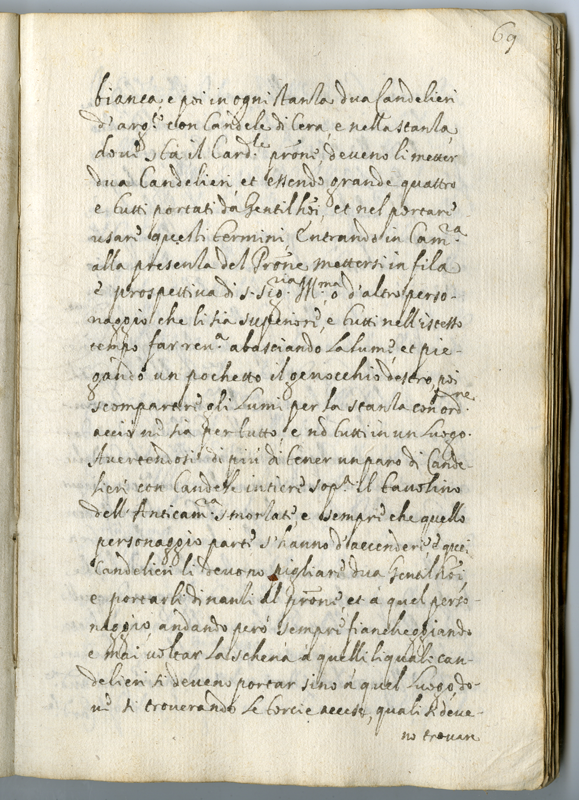 69
bianca e poi in ogni stanza dua Candelieri
d'arg.to con Candele di Cera, e nella stanza
dove sta il Card.le prone deveno li metter
dua Candelieri et essendo grande quattro
e tutti portati da Gentilhoi, et nel portare
usare queli termini, Entrando in Cam.a
alla presenza del Prone mettersi in fila
e prospettiva di S. Sig.ria Ill.ma o d'altro perso-
naggio che li sia superiore e tutti nell'istesso
tempo far reu.a abasciando La lume et pie-
gando un pochetto il genocchio destro, poi
scompartire gli Lumi per la stanza con ord.ne
acciò ne sia per tutto e nò tutti in un Luogo.
Avertendosi di più di tener un paro di Cande
lieri con Candelle intiere sop.a il tavolino
dell'Anticam.ra smorzate e sempre che quello
personaggio parte s'hanno d'accendere e quei
Candelieri li devono pigliare dua Gentilhoi
e portarli dinanzi al Prone et à quel perso-
naggio, andando però sempre fiancheggiando
e mai voltar la schena à quelli li quali can-
delieri si deveno portar sino à quel Luogo do-
ve si troverando Le torcie accese, quali si deve-
no trovar